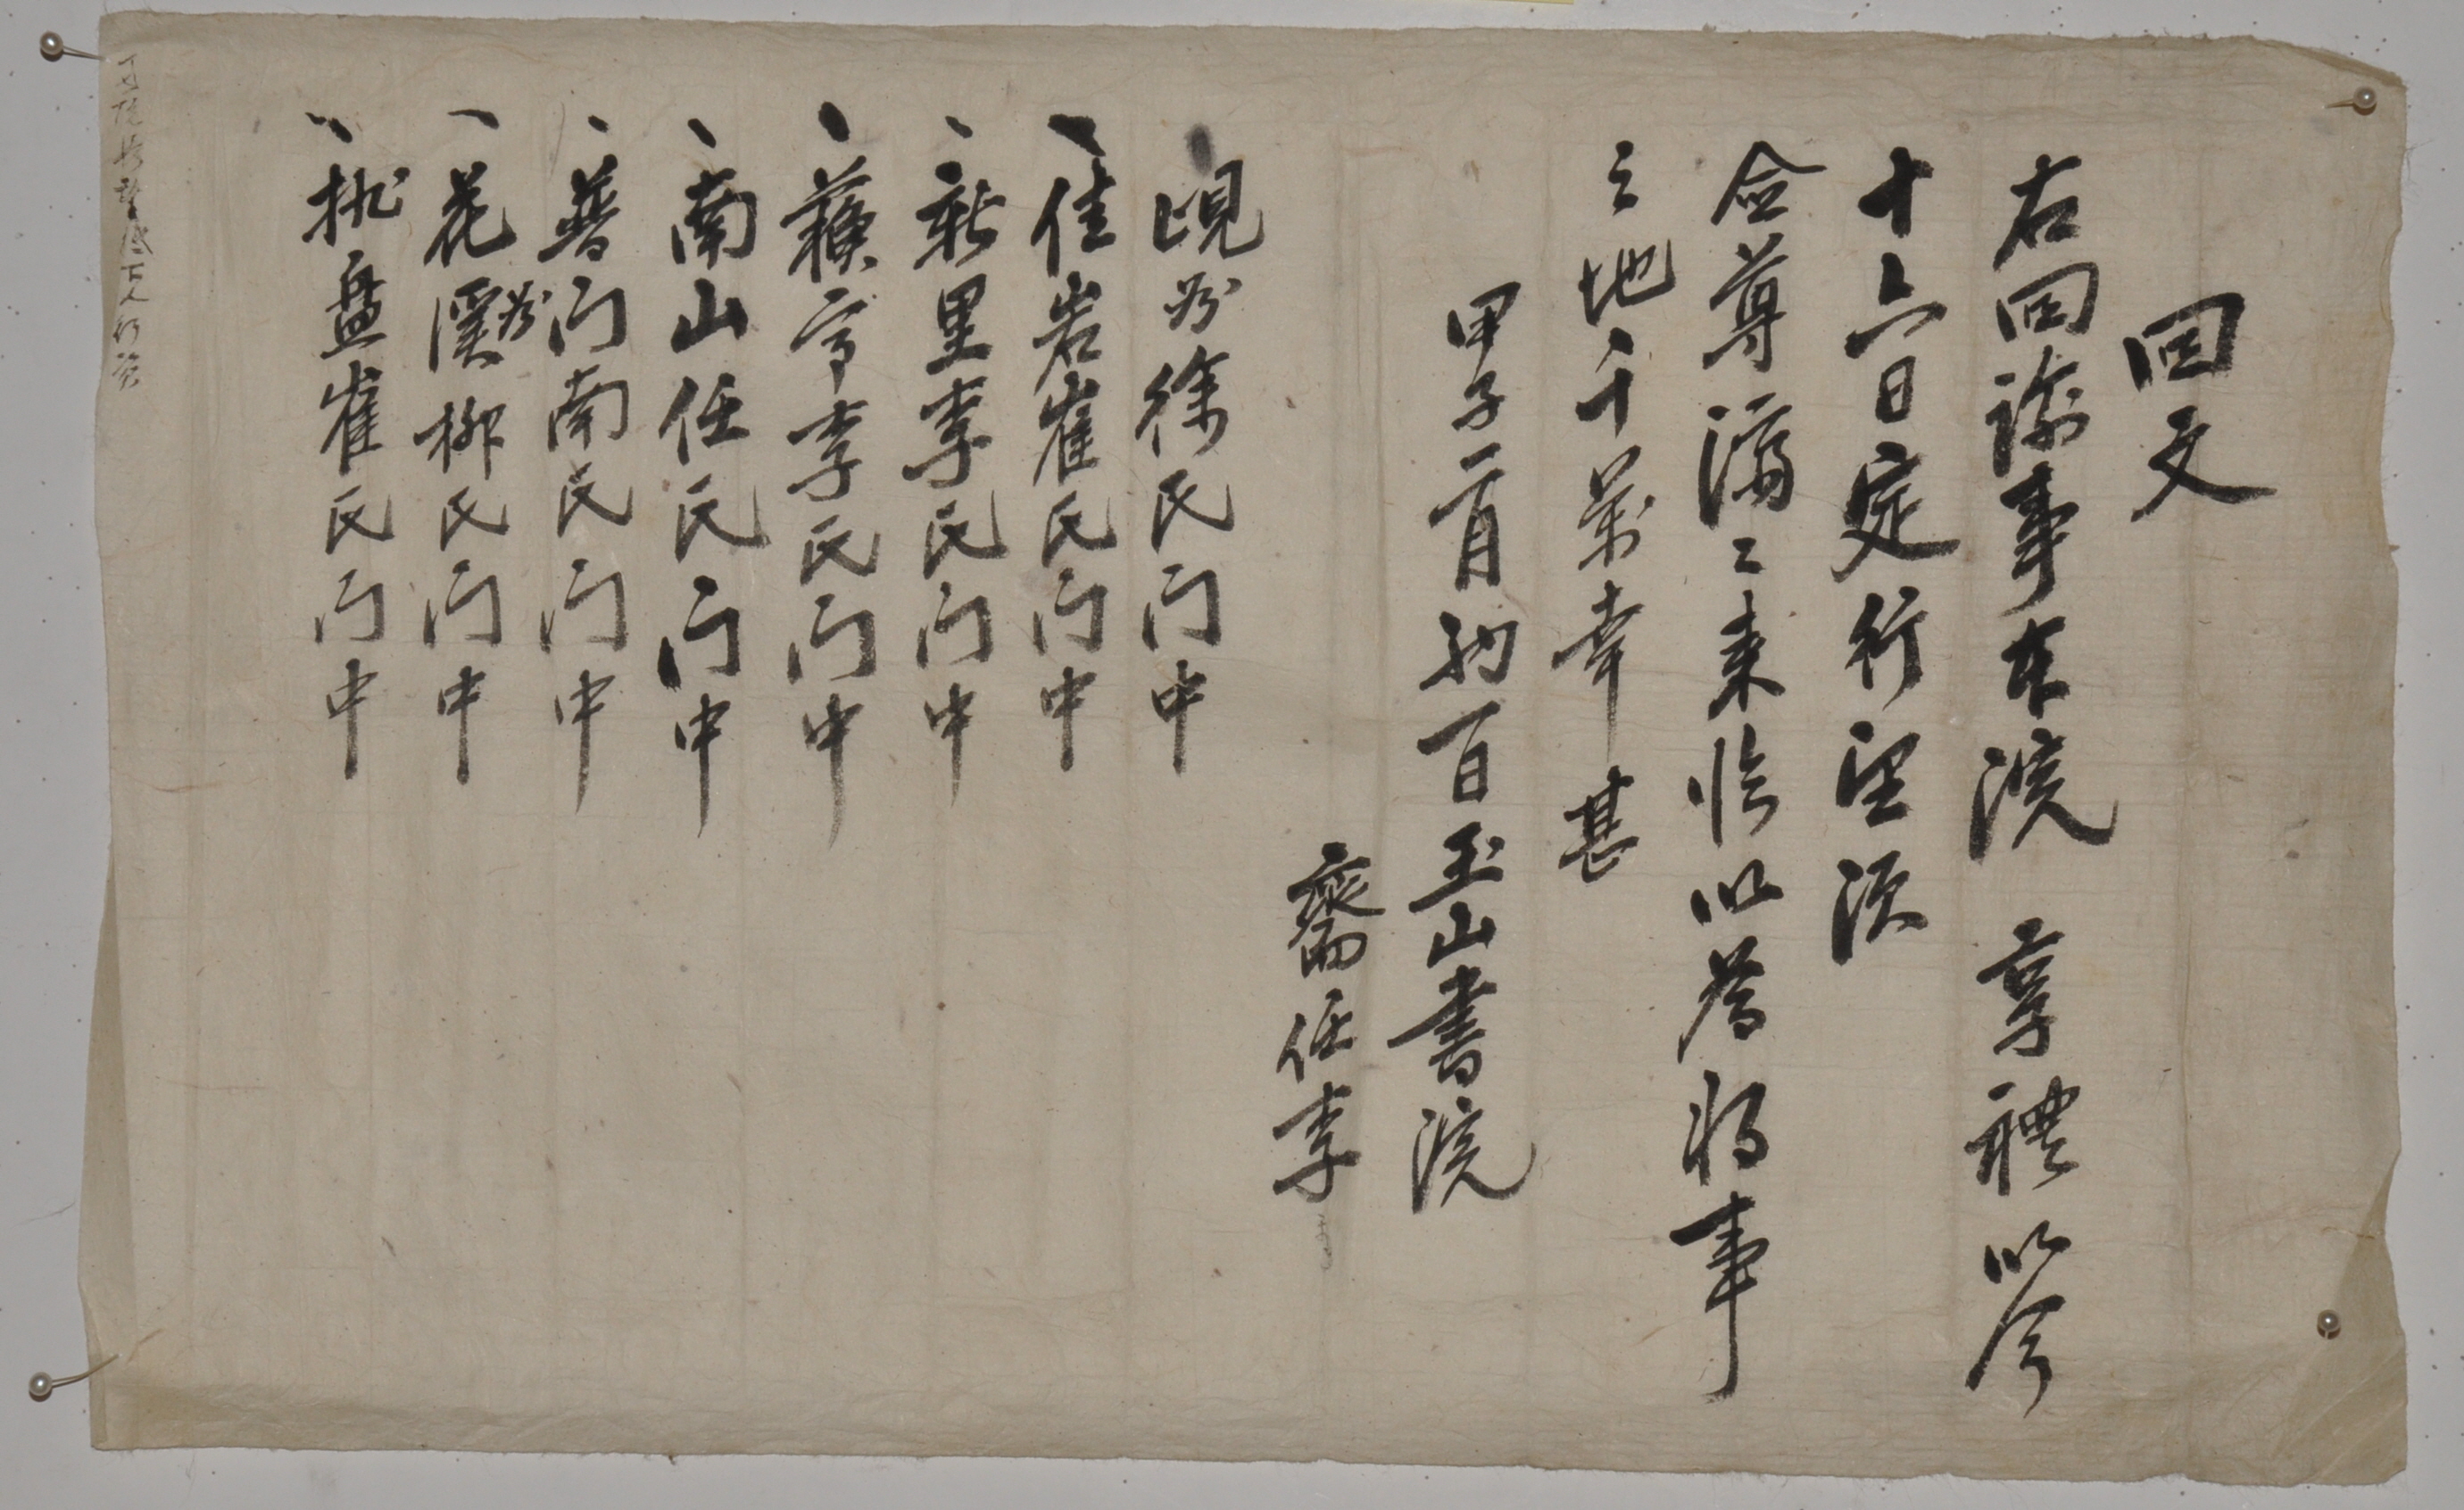 回文
右回諭事本院 享禮以今
十六日定行望須
僉尊濟〻來臨以爲將事
之地千萬幸甚
甲子二月初一日玉山書院
齋任李
峴 徐氏门中
佳岩崔氏门中
新里李氏门中
蘋亭李氏门中
南山任氏门中
普门南氏门中
花溪柳氏门中
盘崔氏门中